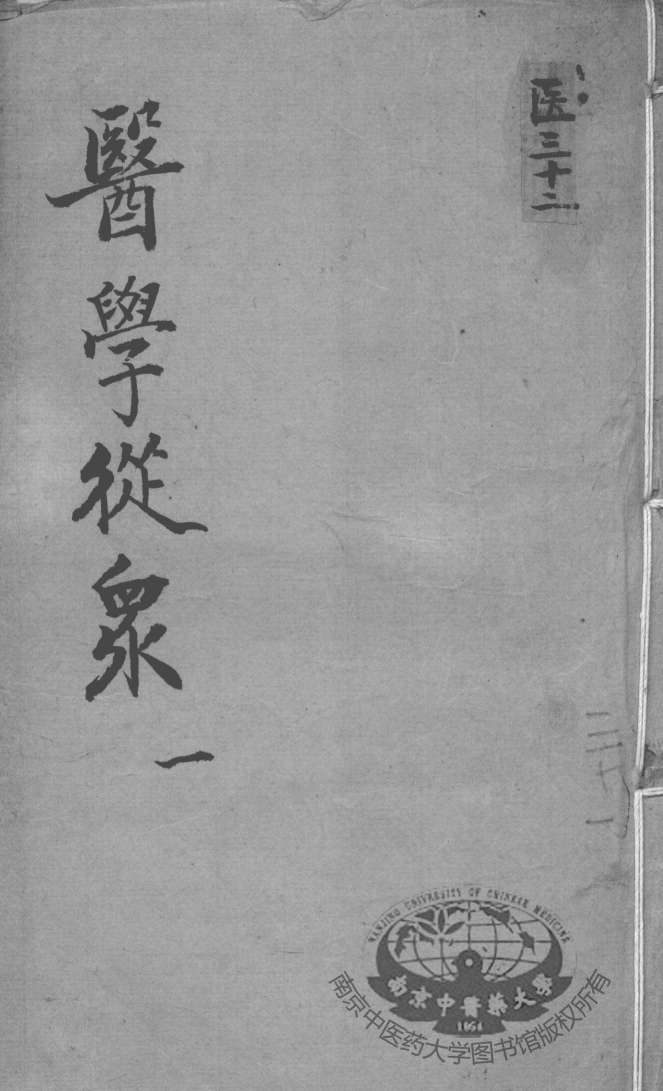 医三十二
醫學從衆
一
NANJING UNIVERSITY OF CHINESE MEDICINE
南京中醫藥大學
1954
南京中医药大学图书馆版权所有